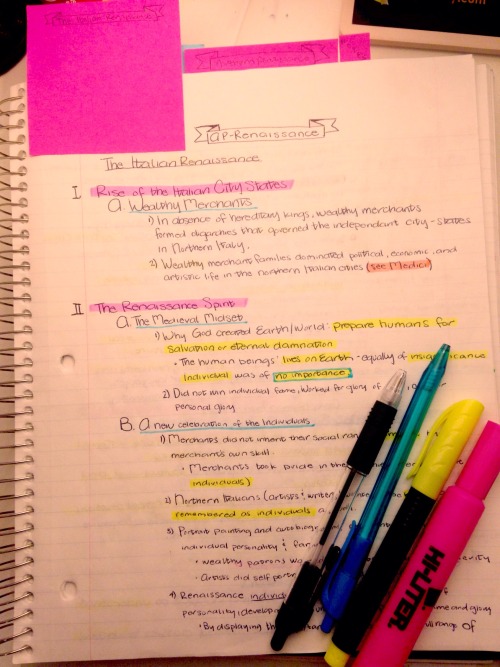 The Italian Renaissance
AP-Renaissance
The Italian Renaissance
I Rise of the Italian City States
a. Wealthy Merchants
1) In absence of hereditary kings, wealthy merchants
formed oligarchies that governed the independent city-states
in Northern Italy.
2) Wealthy merchant families dominated political, economic, and
artistic life in the northern Italian cities (see Medici)
II The Renaissance Spirit
a. The Medieval Midset
1) Why God created Earth/World: prepare humans for
salvation or eternal damnation
• The human beings' lives on Earth - equally of
individual was of no importance
2) Did not win individual fame, worked for glory of
personal glory
B. A new celebration of the Individuals
1) Merchants did not inherit their social
merchants own skill.
• Merchants took pride in
individuals)
2) Northern Italians (artists,
remembered as individuals
3) Portrait painting and
individual personality &
• wealthy patrons
• Artists did self
4) Renaissance
personality,
and glory
• By displaying
of
HI-LITER